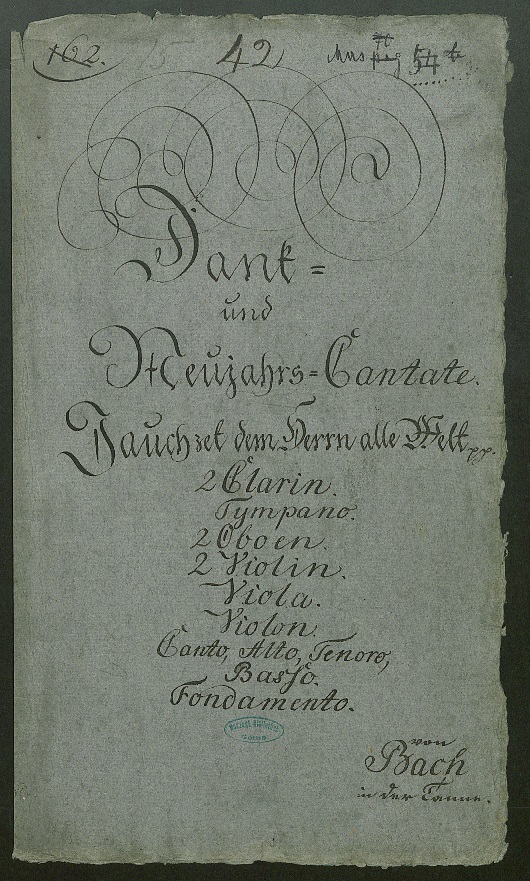 162. 42
Dank =
und
Neujahrs = Cantate.
Jauchzet dem Herrn alle Welt pp.
2 Clarin.
Tympano.
2 Oboen.
2 Violin.
Viola.
Violon.
Canto, Alto, Tenore,
Basso.
Fondamento.
von
Bach
in der Tanne.